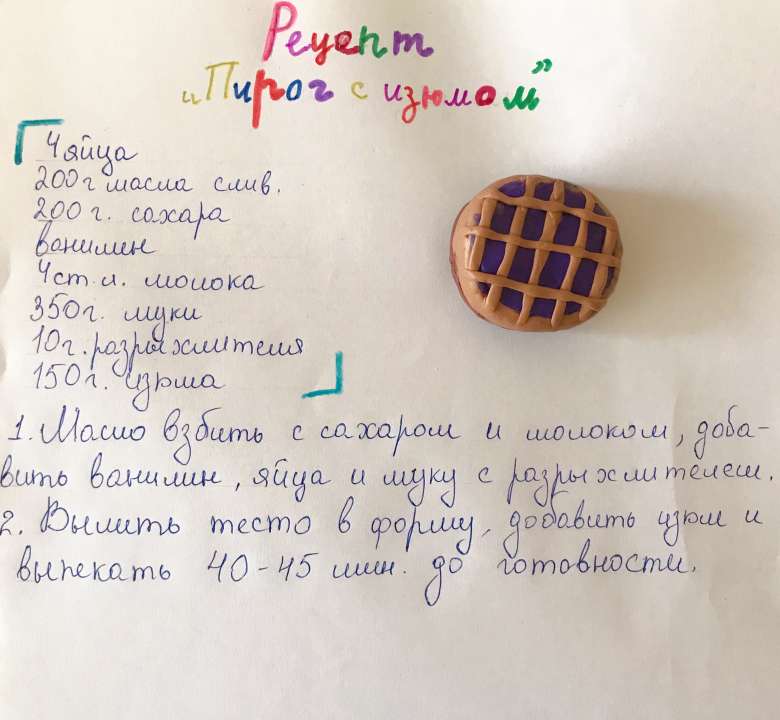 Рецепт
„Пирог с изюмом”
4 яйца
200 г масла слив.
200 г. сахара
ванилин
4 ст. л. молока
350 г. муки
10 г. разрыхлителя
150 г. изюма
1. Масло взбить с сахаром и молоком, доба-
вить ванилин, яйца и муку с разрыхлителем.
2. Вылить тесто в форму, добавить изюм и
выпекать 40-45 мин. до готовности.